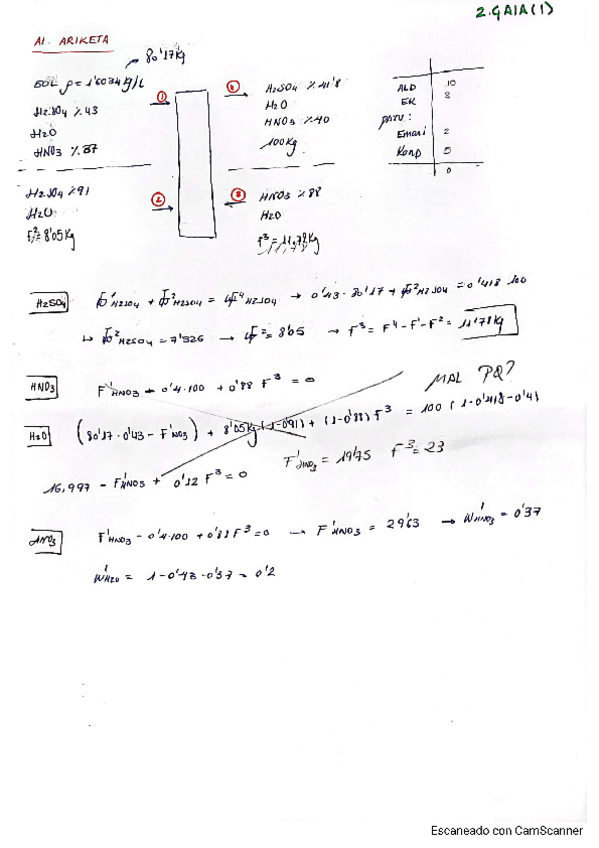 2. GAIA (1)
A1. ARIKETA
80'17 kg
SOL ρ = 1'6034 kg/L
H2SO4 % 43
H2O
HNO3 % 37
①
④
H2SO4 % 41'8
H2O
HNO3 % 40
100 kg
ALD 10
EK 8
Emari 2
Konp 5
0
H2SO4 % 91
H2O
F²= 8'05 kg
②
③
HNO3 % 88
H2O
F³ = 11,78 kg
H2SO4
F¹H2SO4 + F²H2SO4 = F⁴H2SO4 → 0'43 · 80'17 + F²H2SO4 = 0'418 · 100
↳ F²H2SO4 = 7'326 → F² = 8'05 → F³ = F⁴ - F¹ - F² = 11'78 kg
HNO3
F¹HNO3 - 0'4·100 + 0'88 F³ = 0
MAL PQ?
H2O
(80'17 · 0'43 - F¹HNO3) + 8'05 kg (1-0'91) + (1-0'88) F³ = 100 (1-0'418-0'4)
F¹HNO3 = 19'75 F³ = 23
16,997 - F¹HNO3 + 0'12 F³ = 0
HNO3
F¹HNO3 - 0'4·100 + 0'88 F³ = 0 → F¹HNO3 = 29'63 → W¹HNO3 = 0'37
W¹H2O = 1 - 0'43 - 0'37 = 0'2
Escaneado con CamScanner